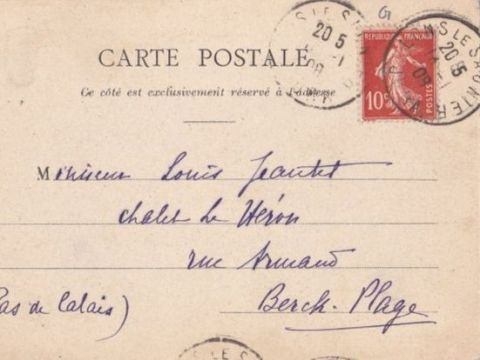 CARTE POSTALE
Ce côté est exclusivement réservé à l'adresse
RÉPUBLIQUE FRANÇAISE
10c
POSTES
LONS LE SAUNIER
20 5
Monsieur Louis Jeantet
chalet Le Héron
rue Armand
Berck-Plage
Pas de Calais)